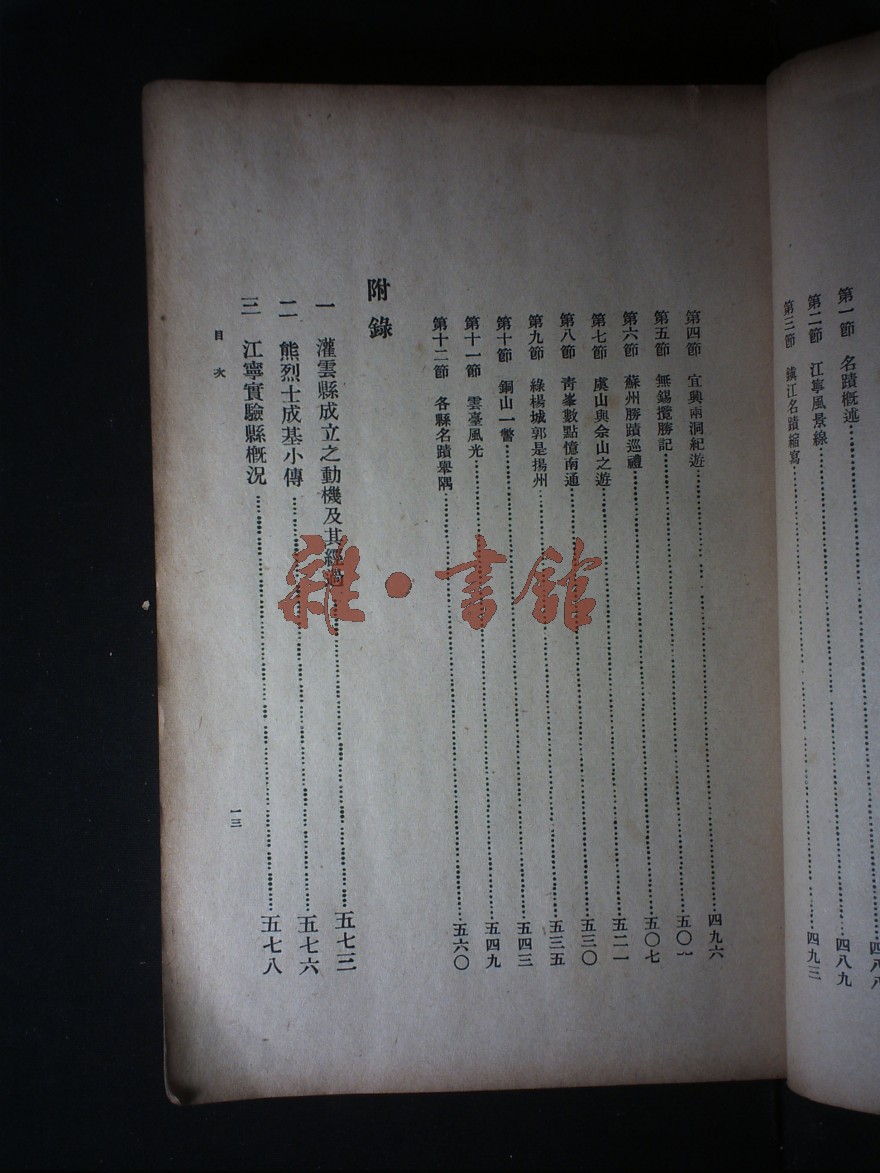 第一節　名蹟概述……四八八
第二節　江寧風景線……四八九
第三節　鎮江名蹟縮寫……四九三
第四節　宜興兩洞紀遊……四九六
第五節　無錫攬勝記……五〇
第六節　蘇州勝蹟巡禮……五〇七
第七節　虞山與佘山之遊……五二一
第八節　青峯數點憶南通……五三〇
第九節　綠楊城郭是揚州……五三五
第十節　銅山一瞥……五四三
第十一節　雲臺風光……五四九
第十二節　各縣名蹟舉隅……五六〇
附錄
一　灌雲縣成立之動機及其經過……五七三
二　熊烈士成基小傳……五七六
三　江寧實驗縣概況……五七八
目次
一三
雜·書館